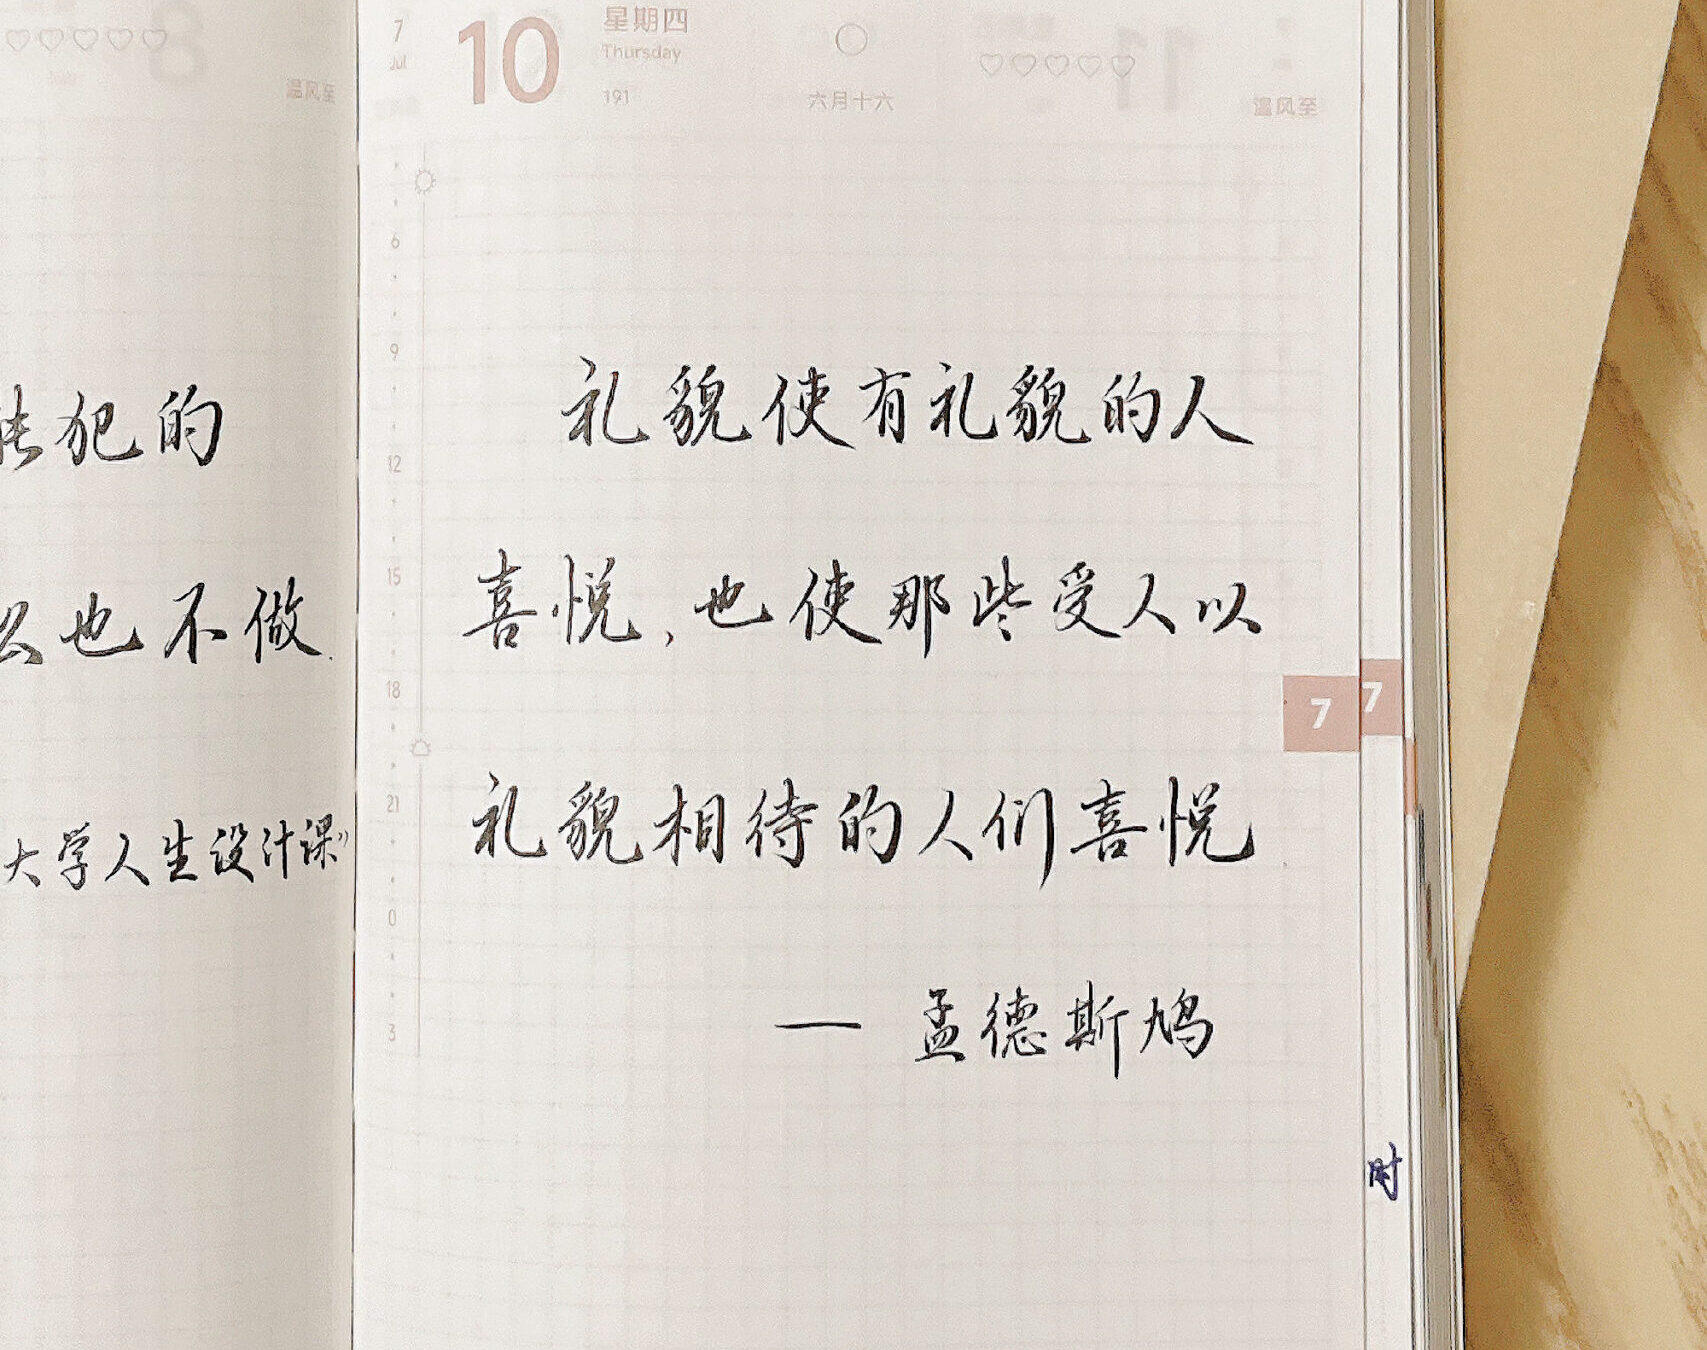 温风至
犯的
也不做.
大学人生设计课》
7
Jul
10
星期四
Thursday
191
六月十六
温风至
6
9
12
15
18
21
0
3
礼貌使有礼貌的人
喜悦,也使那些受人以
礼貌相待的人们喜悦
— 孟德斯鸠
7
7
时